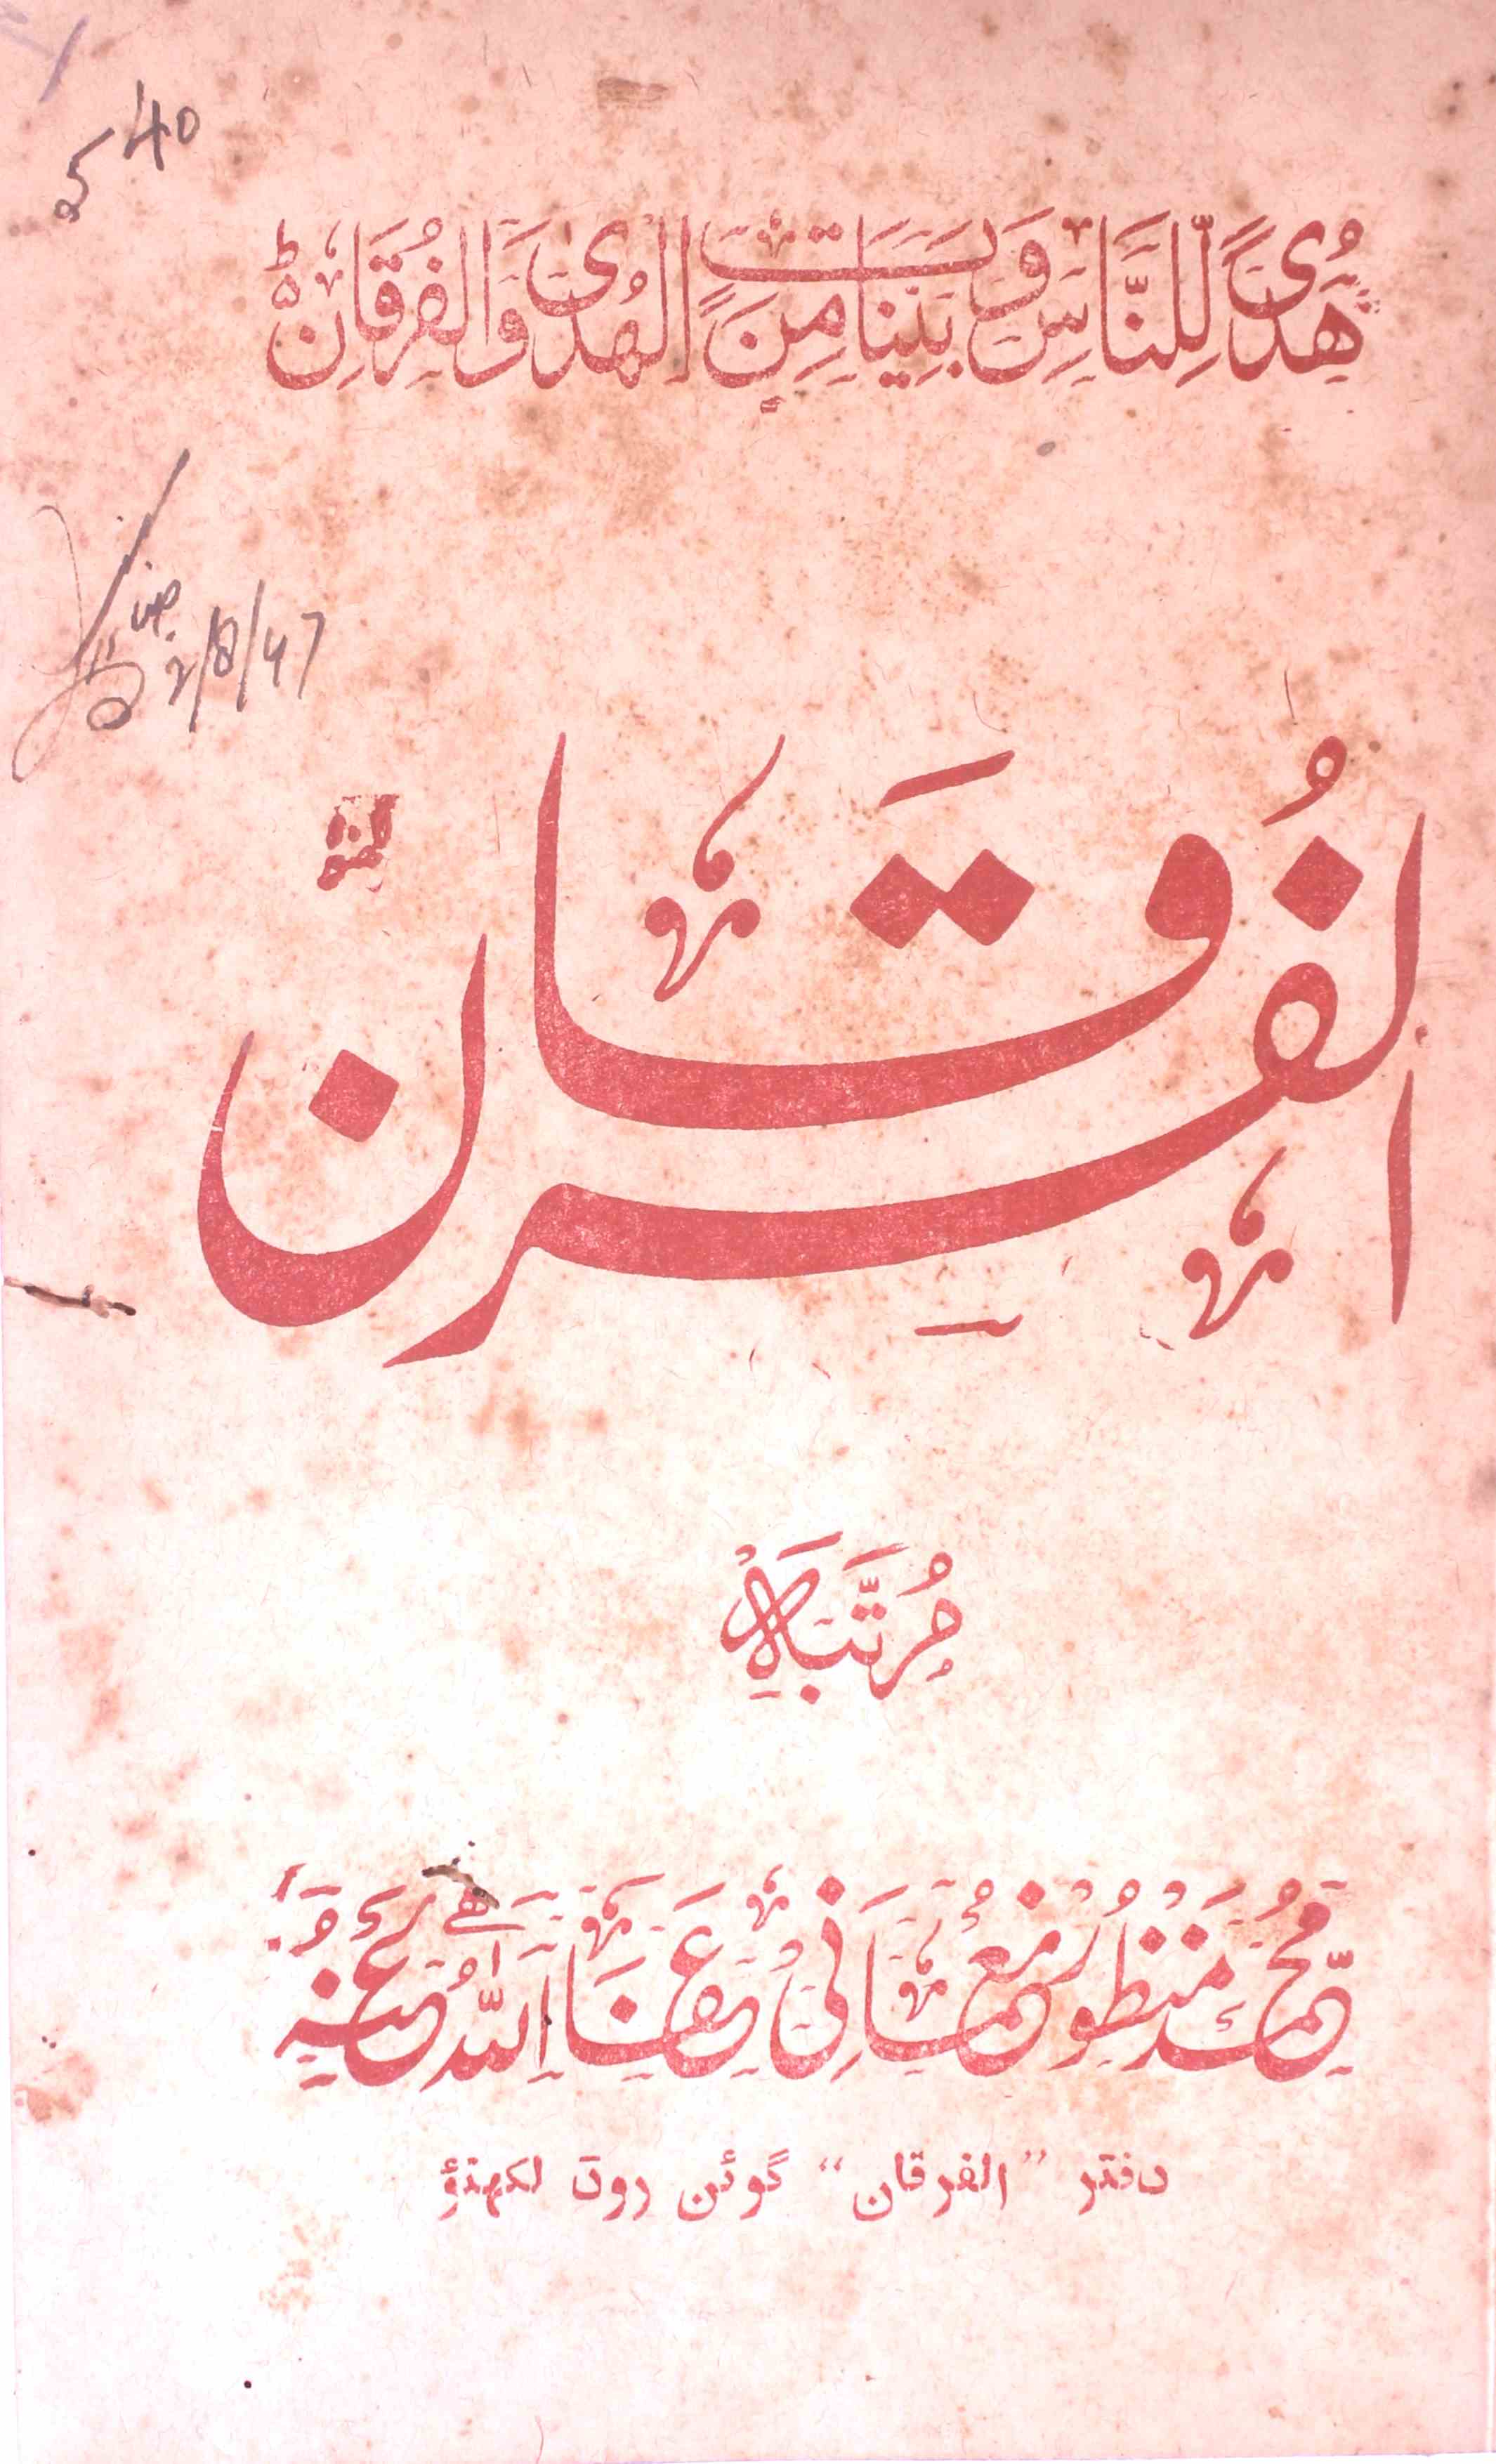 540
هُدًى لِّلنَّاسِ وَبَيِّنَاتٍ مِنَ الْهُدَى وَالْفُرْقَانِ ط
2/8/47
لکھنؤ
الفرقان
مُرَتَّبَہ
محمد منظور نعمانی عفا اللہ عنہ
دفتر "الفرقان" گوئن روڈ لکھنؤ